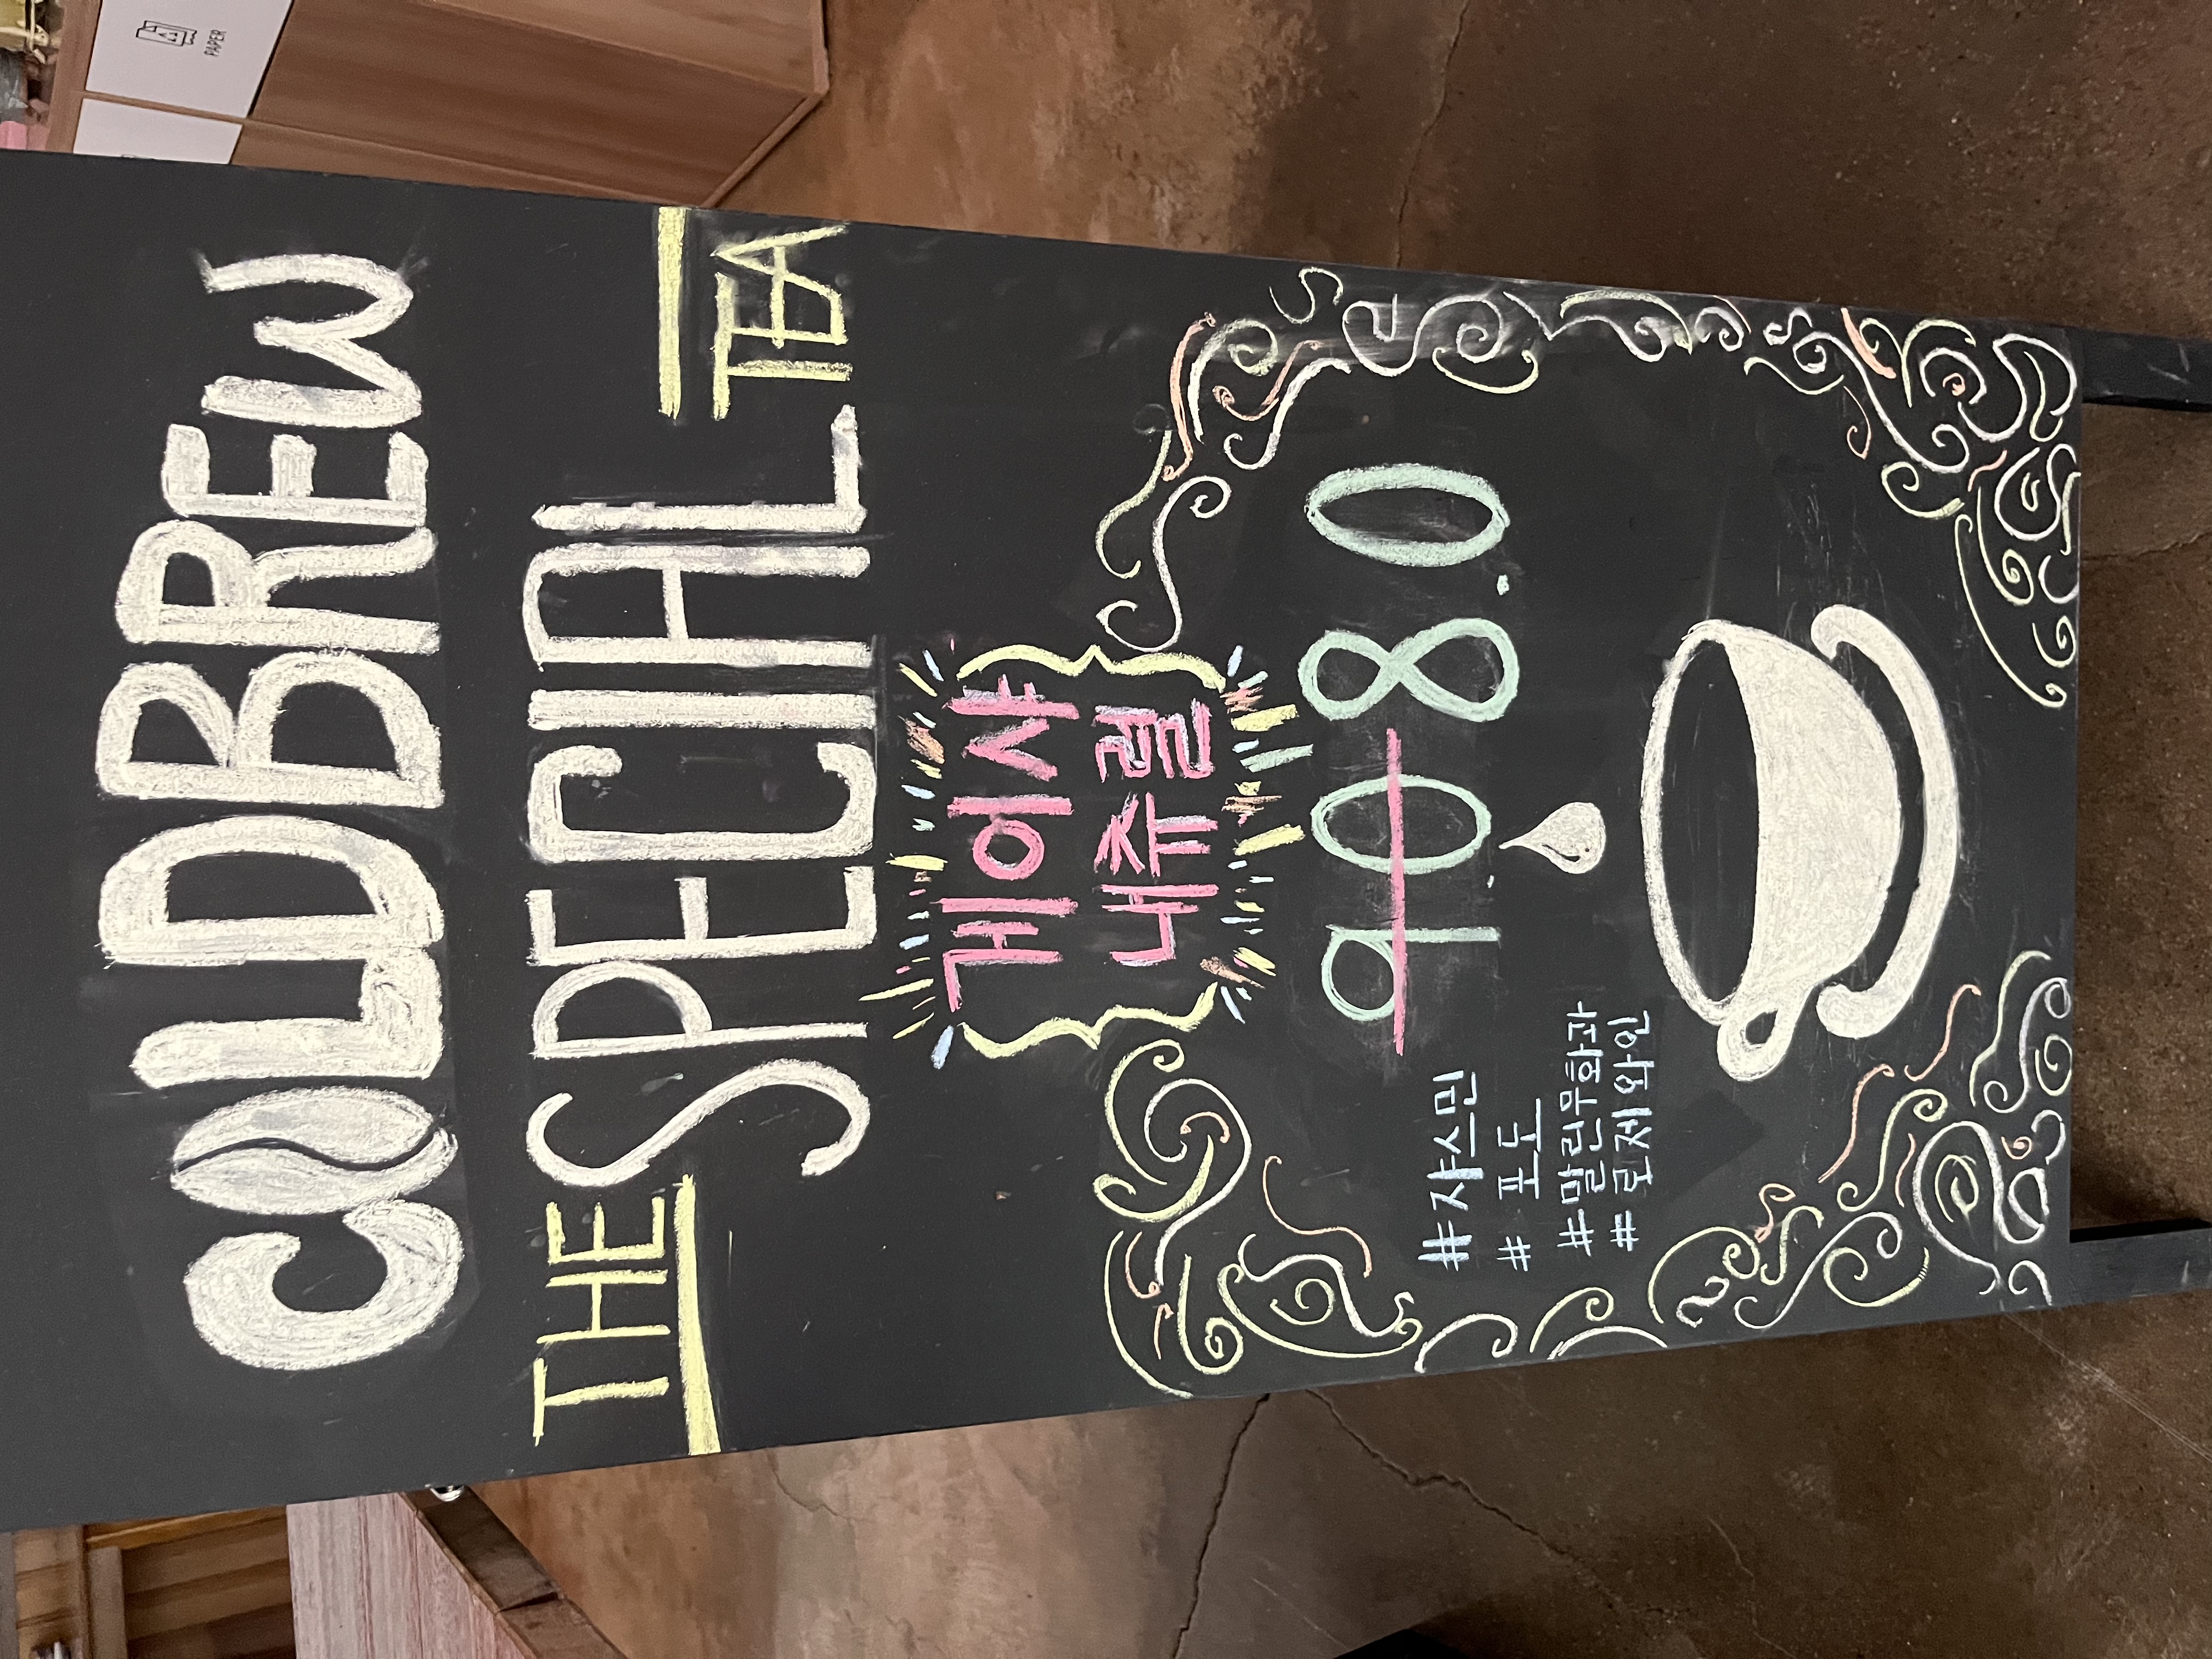 COLDBREW
THE SPECIAL TEA
게이샤
내츄럴
9.0 8.0
#쟈스민
# 포도
#말린무화과
# 로제 와인
PAPER